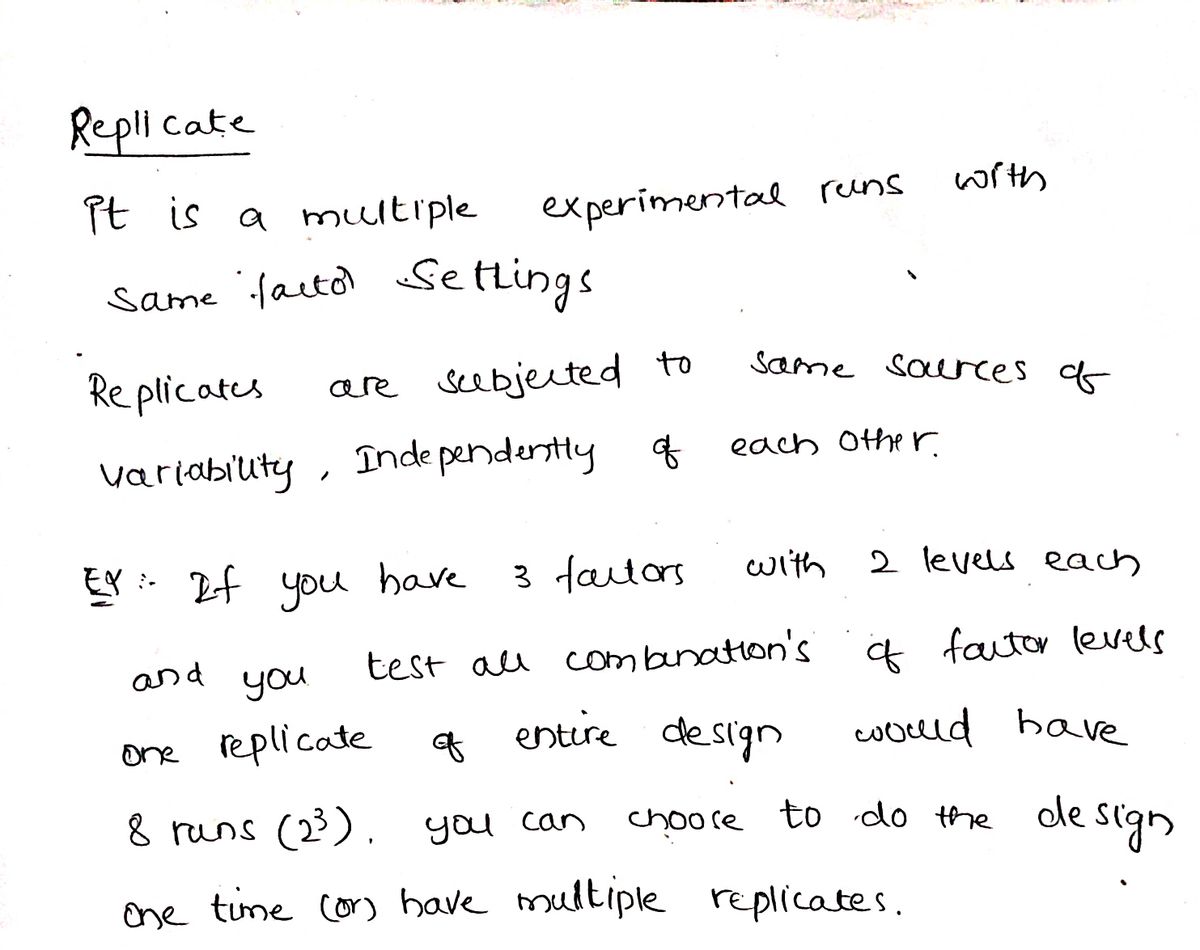 Replicate
It is a multiple experimental runs with
Same factor Settings
Replicates are subjected to same sources of
variability, Independently of each other.
Ex:- If you have 3 factors with 2 levels each
and you test all combination's of factor levels
one replicate of entire design would have
8 runs (2³). you can choose to do the design
one time (or) have multiple replicates.